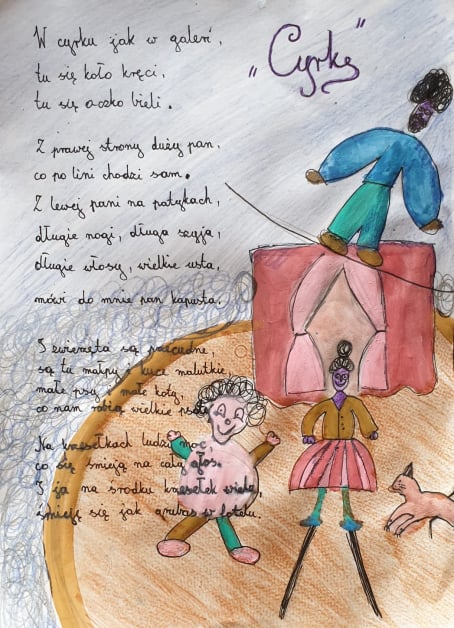 „Cyrk”
W cyrku jak w galerii,
tu się koło kręci,
tu się oczko bieli.
Z prawej strony duży pan,
co po lini chodzi sam.
Z lewej pani na patykach,
długie nogi, długa szyja,
długie włosy, wielkie usta,
mówi do mnie pan kapusta.
I zwierzęta są przecudne,
są tu małpy i kuce malutkie,
małe psy, małe koty,
co nam robią wielkie psoty.
Na krzesełkach ludzi moc,
co się śmieją na cały głos.
I ja na środku krzesełek widzę,
śmieję się jak arbuz w fotelu.